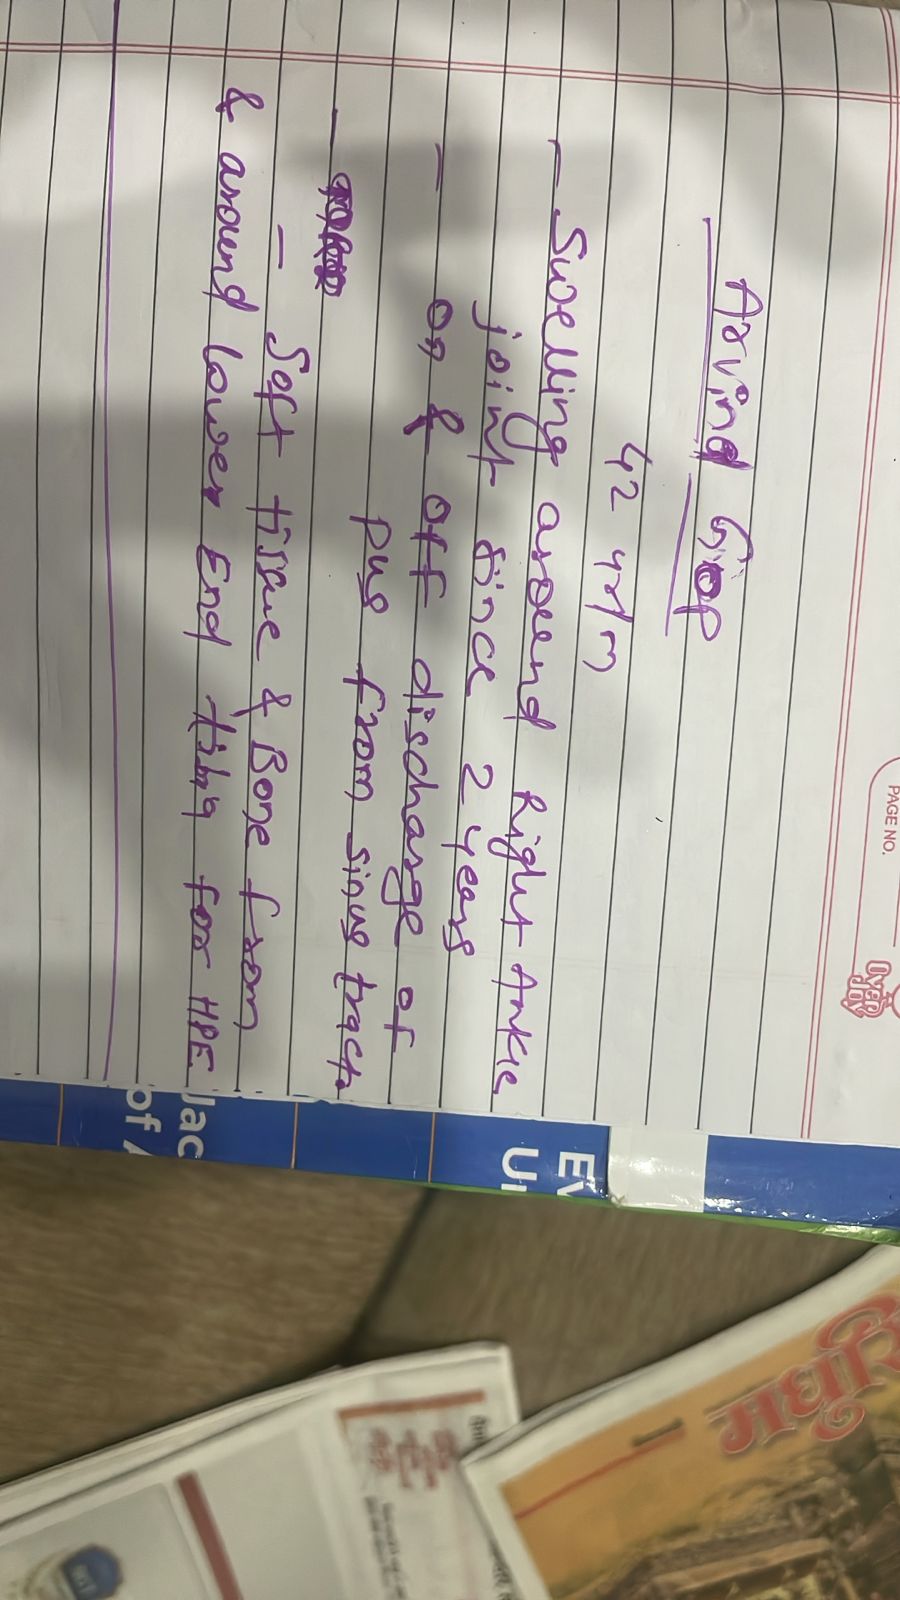 PAGE NO.
OVER
JOY
Arvind Gop
42 yr/m
– Swelling around Right Ankle
joint since 2 years
– on & off discharge of
pus from sinus tract.
–
– Soft tissue & Bone from
& around lower End tibia for HPE
EV
Jac
of A